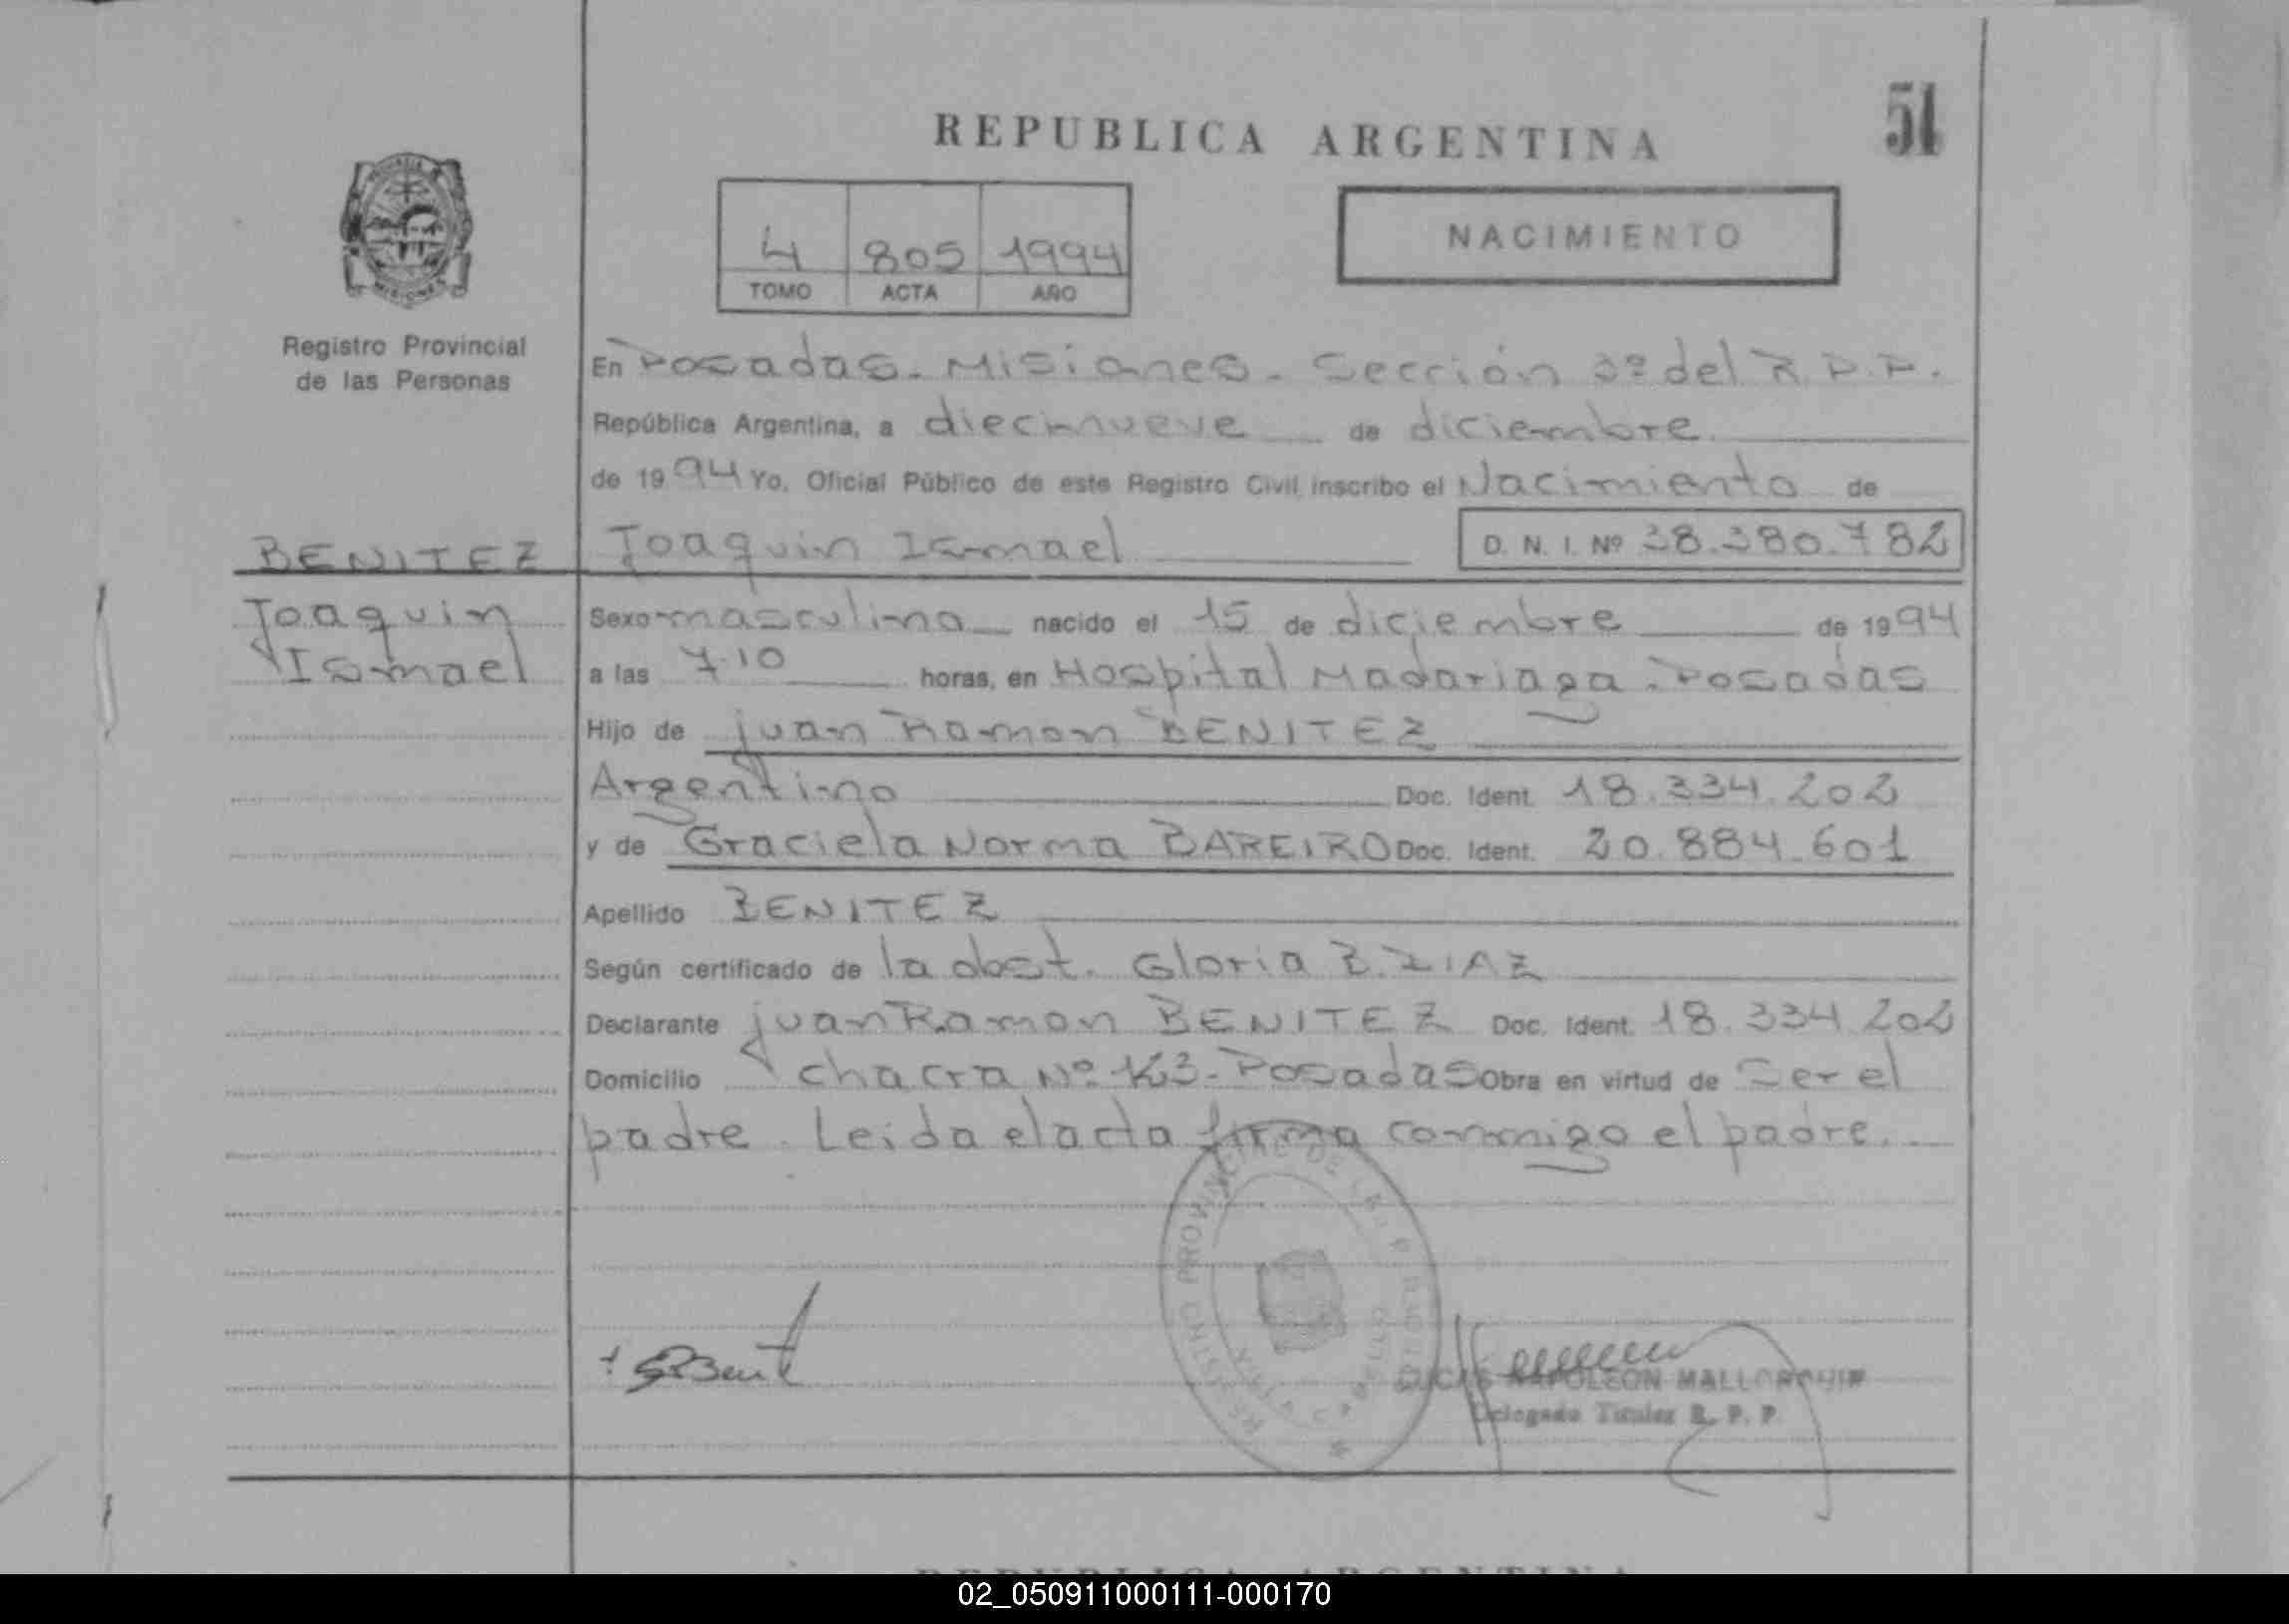 REPUBLICA ARGENTINA
51
4 805 1994
TOMO ACTA AÑO
NACIMIENTO
MISIONES
Registro Provincial
de las Personas
En Posadas - Misiones - Sección 3º del R.P.P.
República Argentina, a diecinueve de diciembre
de 1994 Yo, Oficial Público de este Registro Civil inscribo el Nacimiento de
BENITEZ Joaquin Ismael D. N. I. Nº 38.380.782
Joaquin
Ismael
Sexo masculino nacido el 15 de diciembre de 1994
a las 7.10 horas, en Hospital Madariaga - Posadas
Hijo de Juan Ramon BENITEZ
Argentino Doc. Ident. 18.334.202
y de Graciela Norma BAREIRO Doc. Ident. 20.884.601
Apellido BENITEZ
Según certificado de la obst. Gloria B. DIAZ
Declarante Juan Ramon BENITEZ Doc. Ident. 18.334.202
Domicilio chacra Nº Posadas Obra en virtud de Ser el
padre. Leida el acta firma conmigo el padre.
REGISTRO PROVINCIAL DE LAS PERSONAS
LUCAS NAPOLEON MALLORQUIN
Delegado Titular R. P. P.
REPUBLICA ARGENTINA
02_050911000111-000170